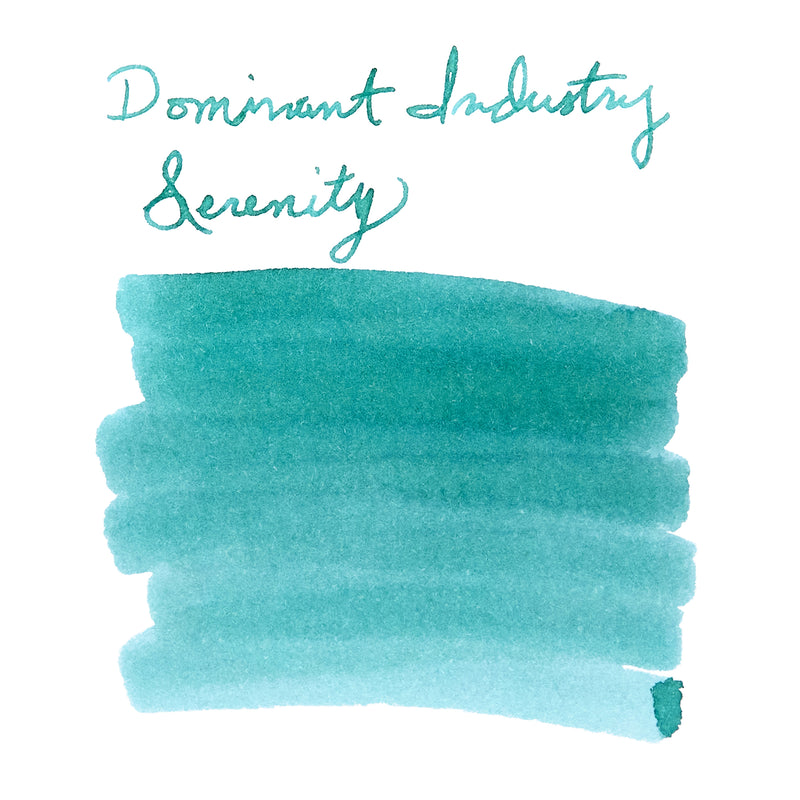 Dominant Industry
Serenity